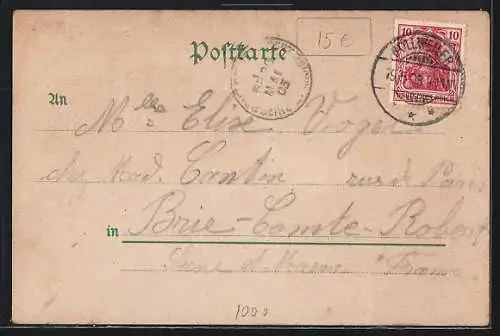 15 €
10 10
Postkarte
BOLLWEILER
MAI
03
An
Mlle Elise Voger
chez Mad. Cantin rue de Paris
in Brie-Comte-Robert
Seine et Marne France
1000